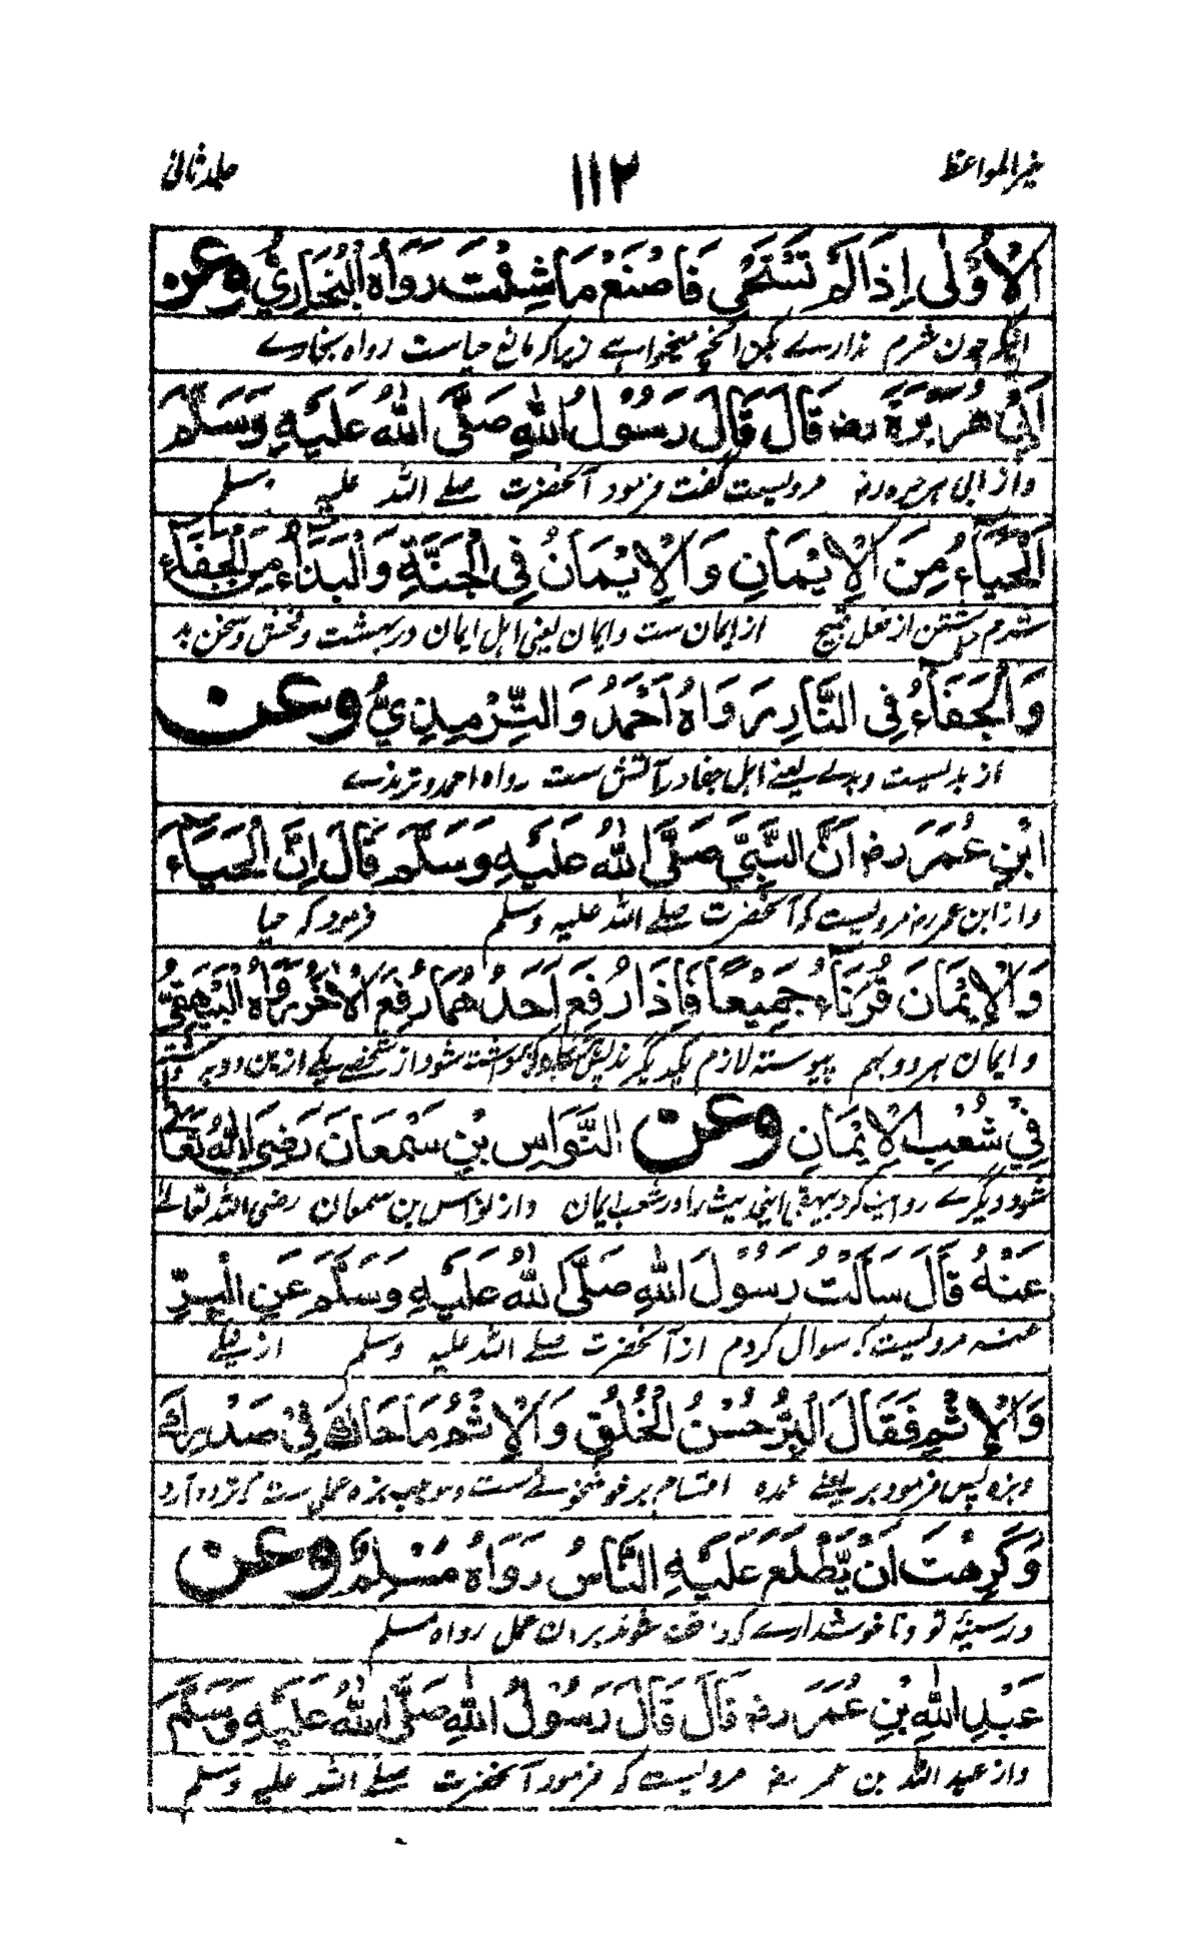 خیر المواعظ ١١٢ جلد ثانی
الْاُوْلٰى اِذَا لَمْ تَسْتَحْيِ فَاصْنَعْ مَا شِئْتَ رَوَاهُ الْبُخَارِيُّ وعن
چون شرم نداری بکن آنچه میخواهے زیراکه مانع حیاست رواه بخارے
اَبِيْ هُرَيْرَةَ رضـ قَالَ قَالَ رَسُوْلُ اللّٰهِ صَلَّى اللّٰهُ عَلَيْهِ وَسَلَّمَ
واز ابی هریره رضـ مرویست گفت فرمود آنحضرت صلے اللّٰه علیه وسلم
اَلْحَيَآءُ مِنَ الْاِيْمَانِ وَالْاِيْمَانُ فِي الْجَنَّةِ وَالْبَذَآءُ مِنَ الْجَفَآءِ
شرم داشتن از فعل قبیح از ایمان ست وایمان یعنی اهل ایمان در بهشت و فحش و سخن بد
وَالْجَفَآءُ فِي النَّارِ رَوَاهُ اَحْمَدُ وَالتِّرْمِذِيُّ وعن
از بدیست وبدے یعنے اهل جفا در آتش ست رواه احمد و ترمذے
ابْنِ عُمَرَ رضـ اَنَّ النَّبِيَّ صَلَّى اللّٰهُ عَلَيْهِ وَسَلَّمَ قَالَ اِنَّ الْحَيَآءَ
واز ابن عمر رضـ مرویست که آنحضرت صلے اللّٰه علیه وسلم فرمود که حیا
وَالْاِيْمَانَ قُرَنَآءُ جَمِيْعًا فَاِذَا رُفِعَ اَحَدُهُمَا رُفِعَ الْاٰخَرُ رَوَاهُ الْبَيْهَقِيُّ
وایمان هر دو بهم پیوسته لازم یکدیگر شود از شخصے یکے ازین دو
فِيْ شُعَبِ الْاِيْمَانِ وعن النَّوَّاسِ بْنِ سَمْعَانَ رَضِيَ اللّٰهُ تَعَالٰى
شود دیگرے روایت کرد بیهقی این حدیث را در شعب ایمان واز نواس بن سمعان رضی اللّٰه تعالٰے
عَنْهُ قَالَ سَاَلْتُ رَسُوْلَ اللّٰهِ صَلَّى اللّٰهُ عَلَيْهِ وَسَلَّمَ عَنِ الْبِرِّ
عنه مرویست که سوال کردم از آنحضرت صلے اللّٰه علیه وسلم از نیکے
وَالْاِثْمِ فَقَالَ الْبِرُّ حُسْنُ الْخُلُقِ وَالْاِثْمُ مَا حَاكَ فِيْ صَدْرِكَ
وبزه پس فرمود بر یعنے عمده اقسام بر خوشخوئے ست وموجب بزه عملے ست که تردد آرد
وَكَرِهْتَ اَنْ يَّطَّلِعَ عَلَيْهِ النَّاسُ رَوَاهُ مُسْلِمٌ وعن
در سینهٔ تو وناخوش دارے که واقف شوند بر آن عمل رواه مسلم
عَبْدِ اللّٰهِ بْنِ عُمَرَ رضـ قَالَ قَالَ رَسُوْلُ اللّٰهِ صَلَّى اللّٰهُ عَلَيْهِ وَسَلَّمَ
واز عبد اللّٰه بن عمر رضـ مرویست که فرمود آنحضرت صلے اللّٰه علیه وسلم